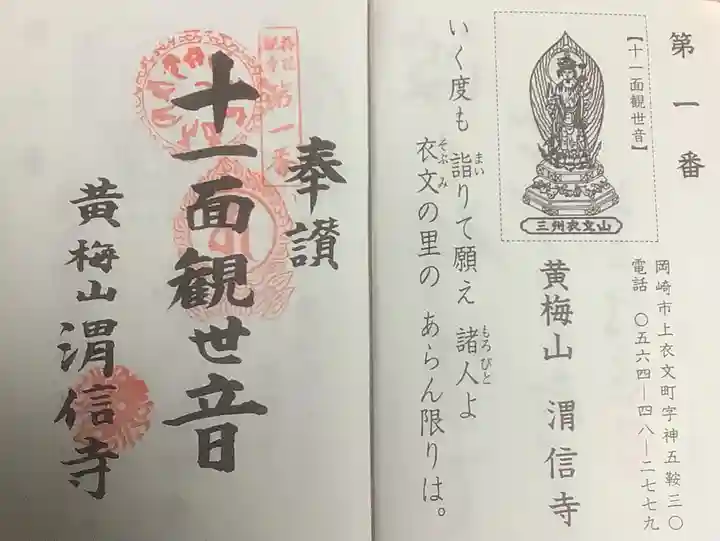 第一番
【十一面観世音】
三州衣文山
岡崎市上衣文町字神五鞍三〇
電話 〇五六四―四八―二七七九
黄梅山 渭信寺
いく度も 詣りて願え 諸人よ
まい
もろびと
衣文の里の あらん限りは。
そぶみ
奉讃
十一面観世音
黄梅山渭信寺
第一番